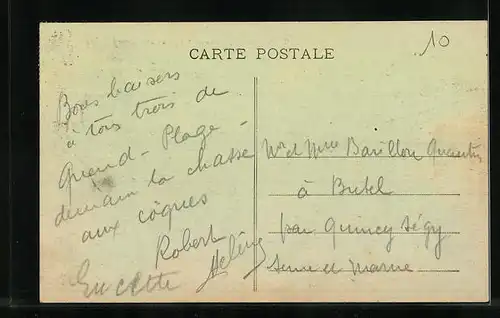 CARTE POSTALE
10
Bons baisers
à tous trois de
Quend-Plage -
demain la chasse
aux coques
Robert
Hélène
Lucette
Mr et Mme Barillon Quentin
à Butel
par Quincy Ségy
Seine et Marne